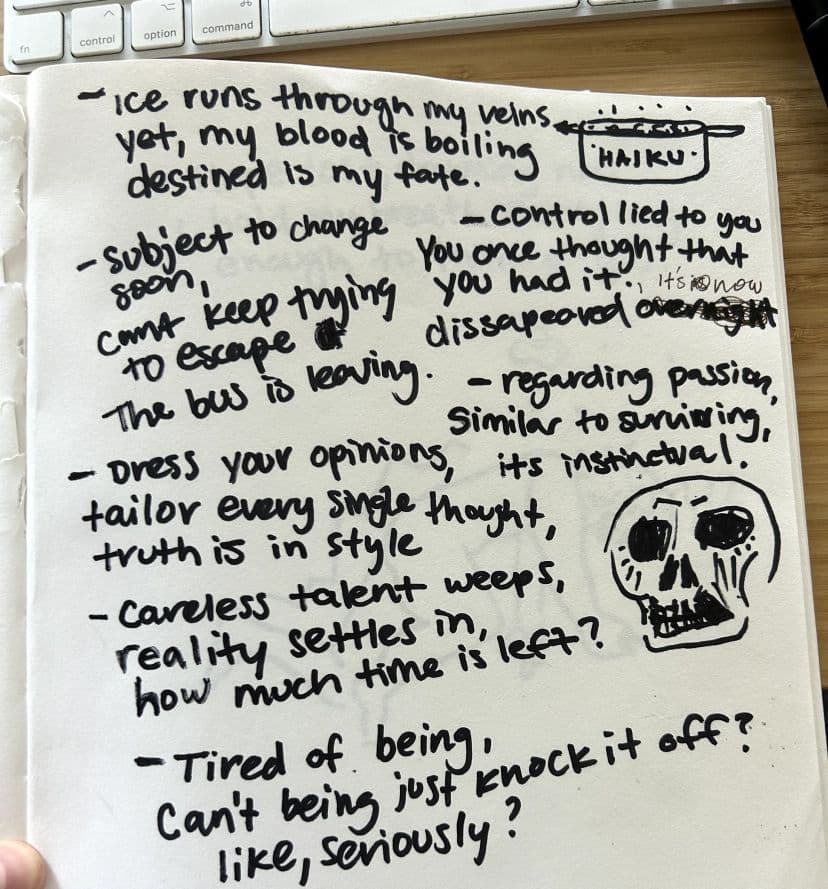 fn
control
option
command
- ice runs through my veins
yet, my blood is boiling
destined is my fate.
HAIKU
- subject to change
soon,
can't keep trying
to escape
The bus is leaving.
- control lied to you
You once thought that
you had it., it's now
dissapeared
- regarding passion,
Similar to surviving,
its instinctual.
- Dress your opinions,
tailor every single thought,
truth is in style
- careless talent weeps,
reality settles in,
how much time is left?
- Tired of being,
Can't being just knock it off?
like, seriously?